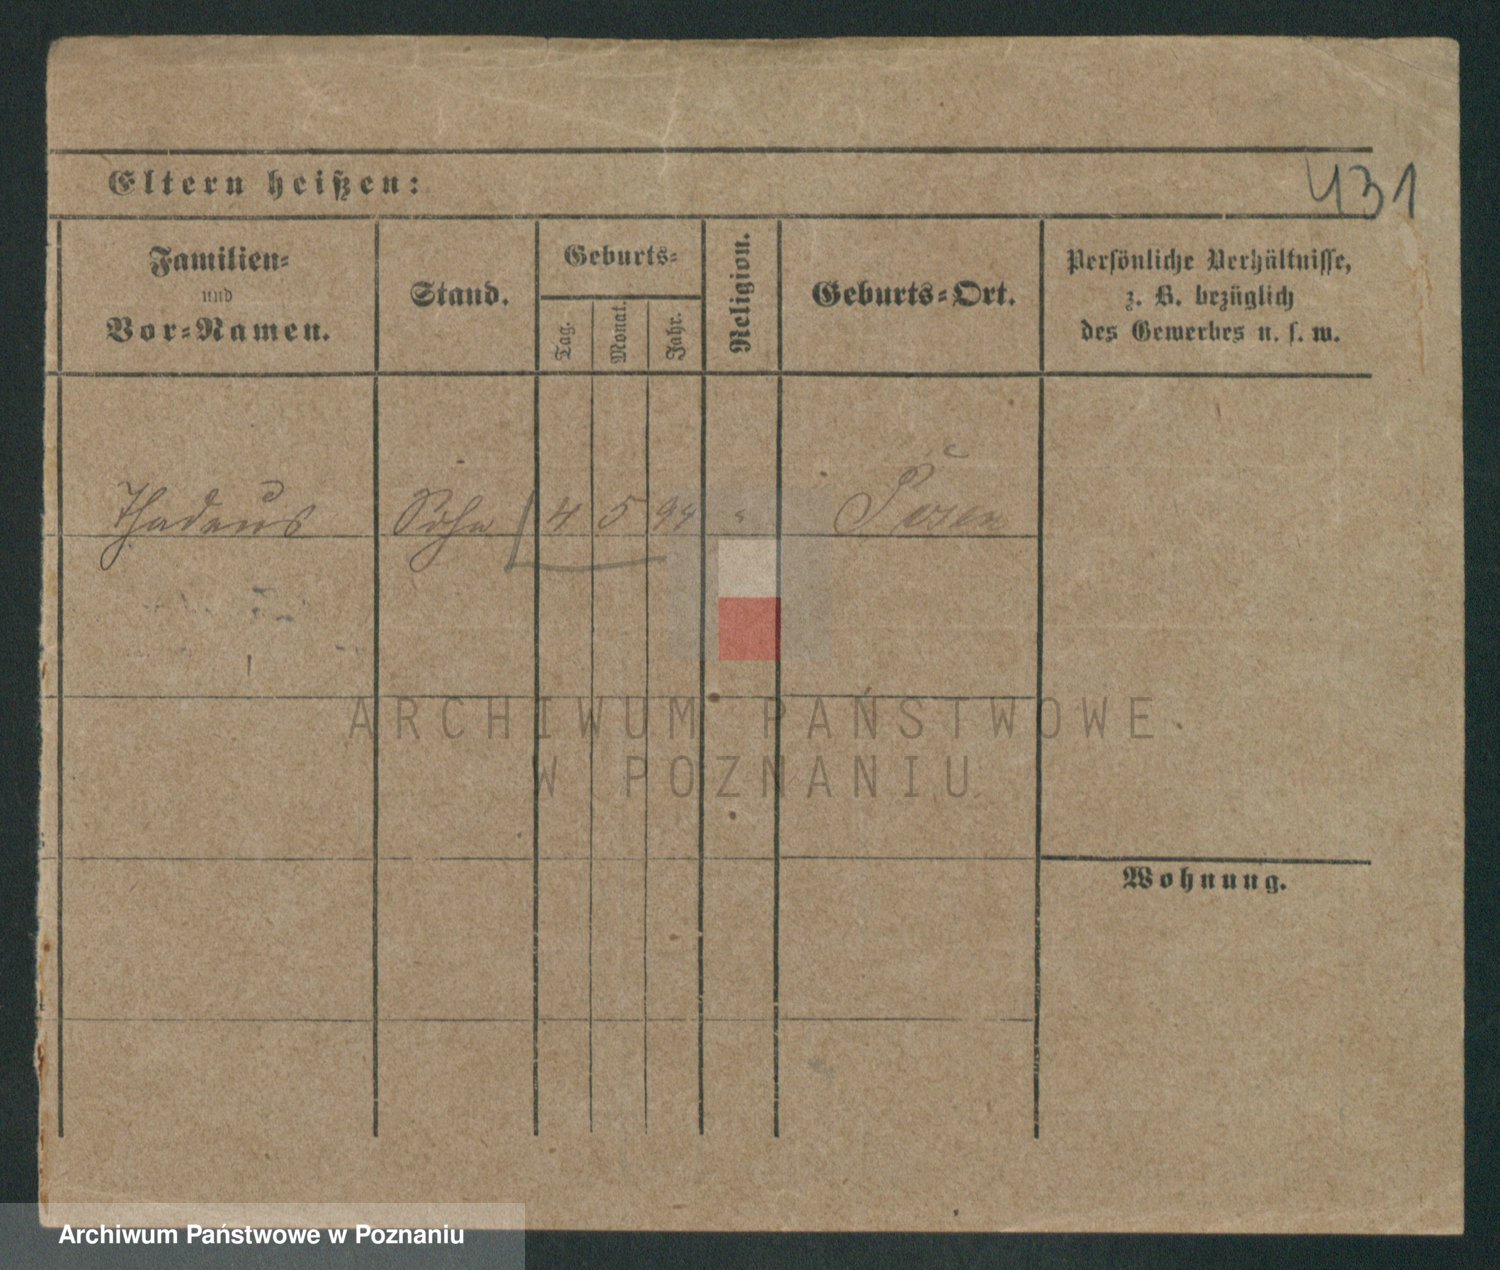 431
Eltern heißen:
Familien=
und
Vor=Namen.
Stand.
Geburts=
Tag.
Monat.
Jahr.
Religion.
Geburts=Ort.
Persönliche Verhältnisse,
z. B. bezüglich
des Gewerbes u. s. w.
Thadeus Sohn 4 5 94 " Posen
ARCHIWUM PAŃSTWOWE
W POZNANIU
Wohnung.
Archiwum Państwowe w Poznaniu